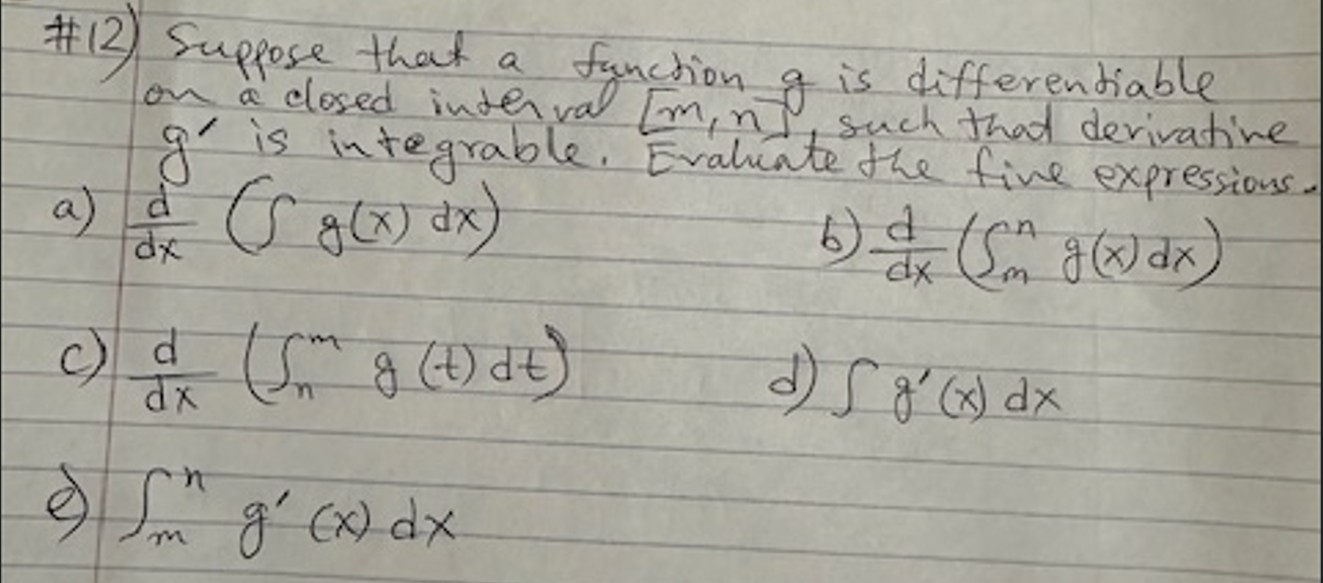 #12) Suppose that a function g is differentiable
on a closed interval [m, n], such that derivative
g′ is integrable. Evaluate the five expressions.
a) d/dx (∫ g(x) dx) b) d/dx (∫_m^n g(x) dx)
c) d/dx (∫_n^m g(t) dt) d) ∫ g′(x) dx
e) ∫_m^n g′(x) dx